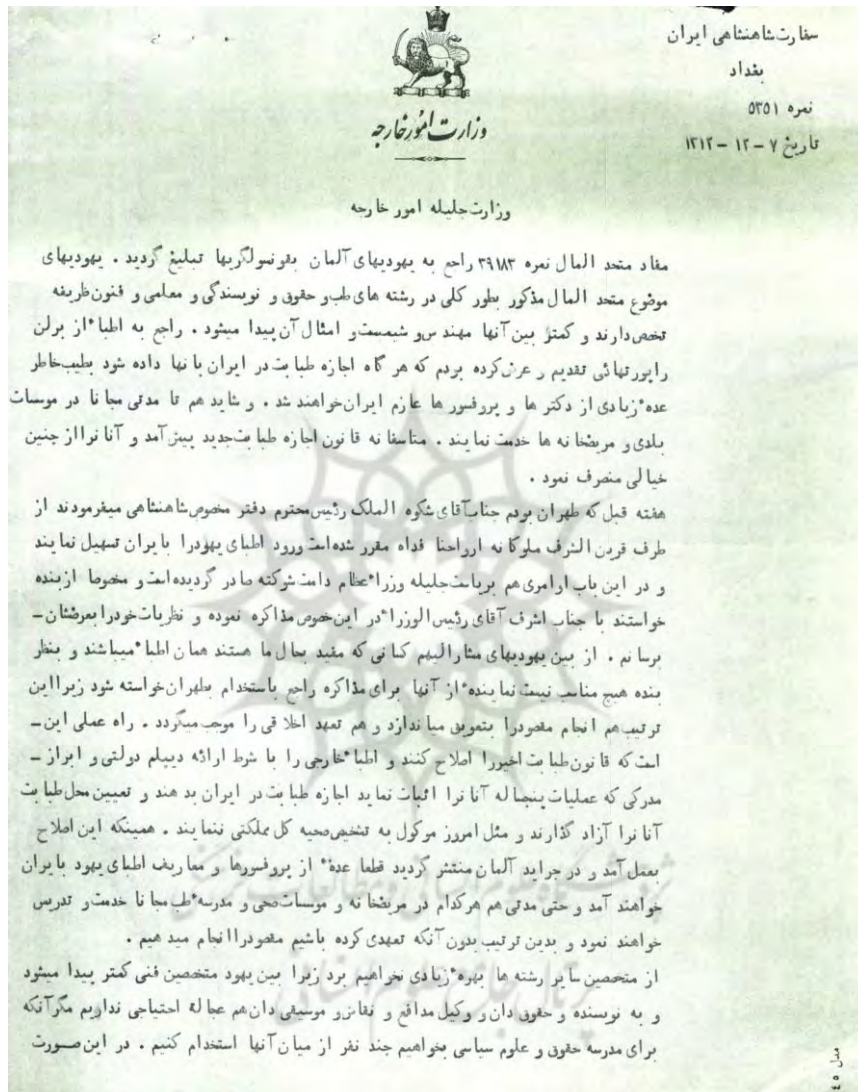 سفارت شاهنشاهی ایران
بغداد
نمره ۵۳۵۱
تاریخ ۷ – ۱۲ – ۱۳۱۲
وزارت امور خارجه
وزارت جلیله امور خارجه
مفاد متحد المال نمره ۳۹۱۸۳ راجع به یهودیهای آلمان بقونسولگریها تبلیغ گردید . یهودیهای
موضوع متحد المال مذکور بطور کلی در رشته های طب و حقوق و نویسندگی و معلمی و فنون ظریفه
تخصص دارند و کمتر بین آنها مهندس و شیمیست و امثال آن پیدا میشود . راجع به اطباء از برلن
راپورتهائی تقدیم و عرض کرده بودم که هر گاه اجازه طبابت در ایران بانها داده شود بطیب خاطر
عدهٔ زیادی از دکتر ها و پروفسور ها عازم ایران خواهند شد . و شاید هم تا مدتی مجانا در موسسات
بلدی و مریضخانه ها خدمت نمایند . متاسفانه قانون اجازه طبابت جدید پیش آمد و آنانرا از چنین
خیالی منصرف نمود .
هفته قبل که طهران بودم جناب آقای شکوه الملک رئیس محترم دفتر مخصوص شاهنشاهی میفرمودند از
طرف قرین الشرف ملوکانه ارواحنا فداه مقرر شده است ورود اطبای یهود را بایران تسهیل نمایند
و در این باب اوامری هم بریاست جلیله وزراء عظام دامت شوکته صادر گردیده است و مخصوصا از بنده
خواستند با جناب اشرف آقای رئیس الوزراء در این خصوص مذاکره نموده و نظریات خود را بعرضشان –
برسانم . از بین یهودیهای مشارالیهم کسانی که مفید بحال ما هستند همان اطباء میباشند و بنظر
بنده هیچ مناسب نیست نمایندهٔ از آنها برای مذاکره راجع باستخدام بطهران خواسته شود زیرا این
ترتیب هم انجام مقصود را بتعویق میاندازد و هم تعهد اخلاقی را موجب میگردد . راه عملی این –
است که قانون طبابت اخیر را اصلاح کنند و اطباء خارجی را با شرط ارائه دیپلم دولتی و ابراز –
مدرکی که عملیات پنجساله آنانرا اثبات نماید اجازه طبابت در ایران بدهند و تعیین محل طبابت
آنانرا آزاد گذارند و مثل امروز موکول به تشخیص صحیه کل مملکتی ننمایند . همینکه این اصلاح
بعمل آمد و در جراید آلمان منتشر گردید قطعا عدهٔ از پروفسورها و معاریف اطبای یهود بایران
خواهند آمد و حتی مدتی هم هرکدام در مریضخانه و موسسات صحی و مدرسه طب مجانا خدمت و تدریس
خواهند نمود و بدین ترتیب بدون آنکه تعهدی کرده باشیم مقصود را انجام میدهیم .
از متخصصین سایر رشته ها بهرهٔ زیادی نخواهیم برد زیرا بین یهود متخصصین فنی کمتر پیدا میشود
و به نویسنده و حقوق دان و وکیل مدافع و نقاش و موسیقی دان هم عجالة احتیاجی نداریم مگر آنکه
برای مدرسه حقوق و علوم سیاسی بخواهیم چند نفر از میان آنها استخدام کنیم . در این صورت
پژوهشگاه علوم انسانی و مطالعات فرهنگی
پرتال جامع علوم انسانی